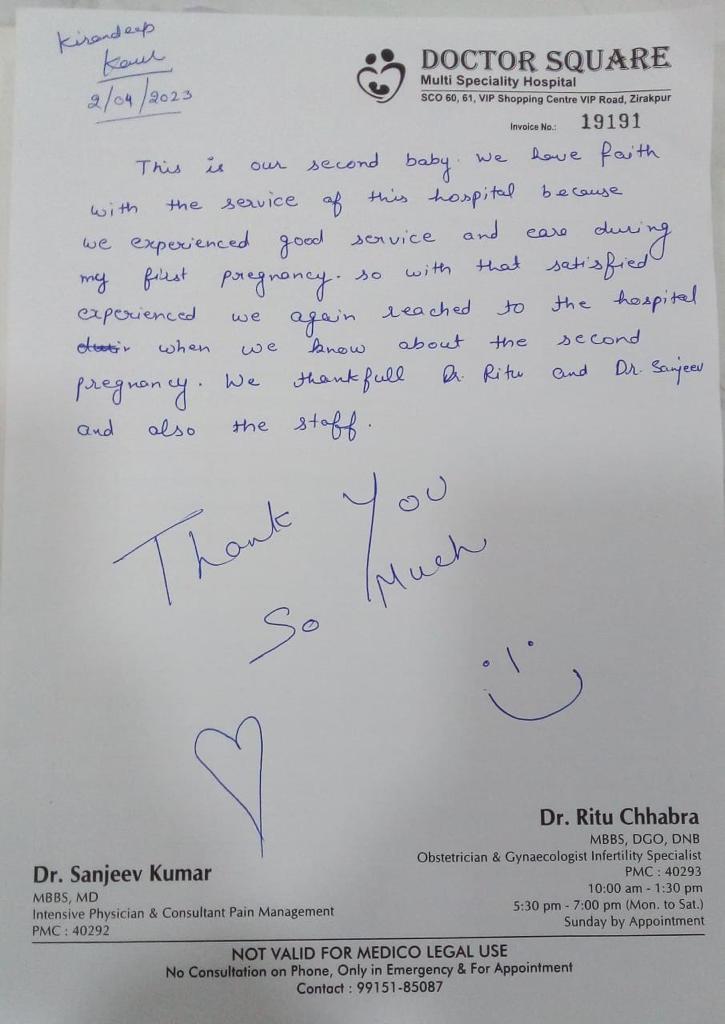 Kirandeep
Kaur
2/04/2023
DOCTOR SQUARE
Multi Speciality Hospital
SCO 60, 61, VIP Shopping Centre VIP Road, Zirakpur
Invoice No.: 19191
This is our second baby. We have faith
with the service of this hospital because
we experienced good service and care during
my first pregnancy. so with that satisfied
experienced we again reached to the hospital
when we know about the second
pregnancy. We thankfull Dr. Ritu and Dr. Sanjeev
and also the staff.
Thank You
So Much
Dr. Ritu Chhabra
MBBS, DGO, DNB
Obstetrician & Gynaecologist Infertility Specialist
PMC : 40293
10:00 am - 1:30 pm
5:30 pm - 7:00 pm (Mon. to Sat.)
Sunday by Appointment
Dr. Sanjeev Kumar
MBBS, MD
Intensive Physician & Consultant Pain Management
PMC : 40292
NOT VALID FOR MEDICO LEGAL USE
No Consultation on Phone, Only in Emergency & For Appointment
Contact : 99151-85087